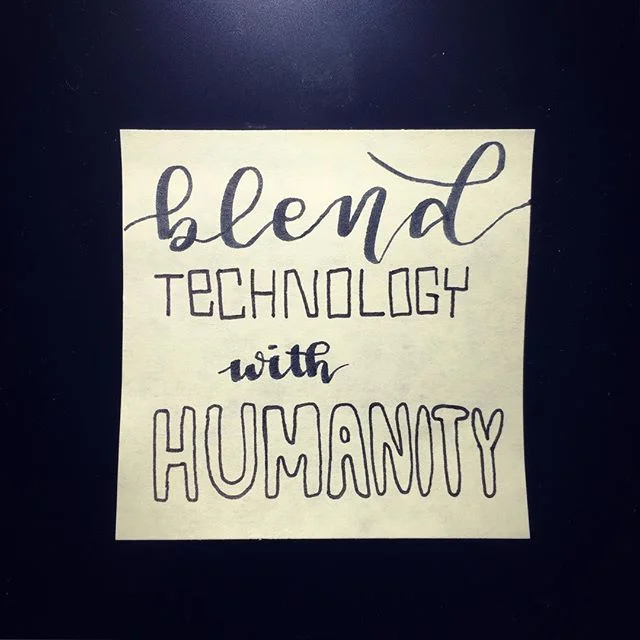 blend
TeCHNOLOGY
with
HUMANITY